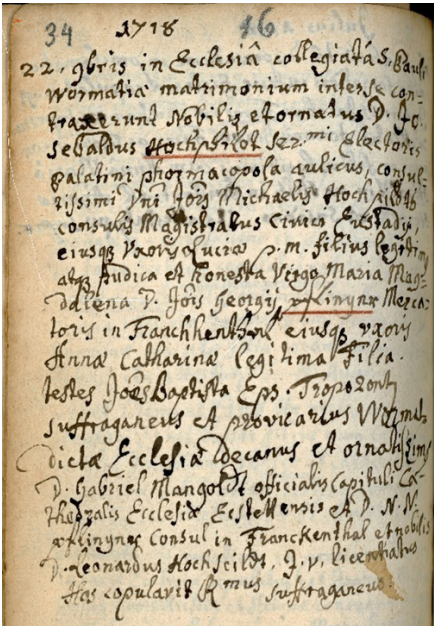 34 1718 16
22. 9bris in Ecclesiâ collegiatâ S. Pauli
Wormatiæ matrimonium inter se con-
traxerunt Nobilis et ornatus D. Jo
sebaldus Hochschilot Ser.mi Electoris
palatini pharmacopola aulicus, consul-
tissimi Dni Jois Michaelis
consulis Magistratus Civici
eiusq uxoris Luciæ p. m. filius legitim
atq pudica et honesta Virgo Maria Mag-
dalena D. Jois Georgij Merca-
toris in Franckhenthal eiusq uxoris
Annæ Catharinæ legitima filia.
testes Joes Baptista Eps. Tropozont
suffraganeus et provicarius Wormat
dictæ Ecclesiæ Decanus et ornatissims
D. Gabriel Mangoldt officialis Capituli Ca-
thedralis Ecclesiæ et D. N. N.
Consul in Franckenthal et nobilis
D. Leonardus Hochscildt, J. v. licentiatus
Has copulavit Rmus suffraganeus.